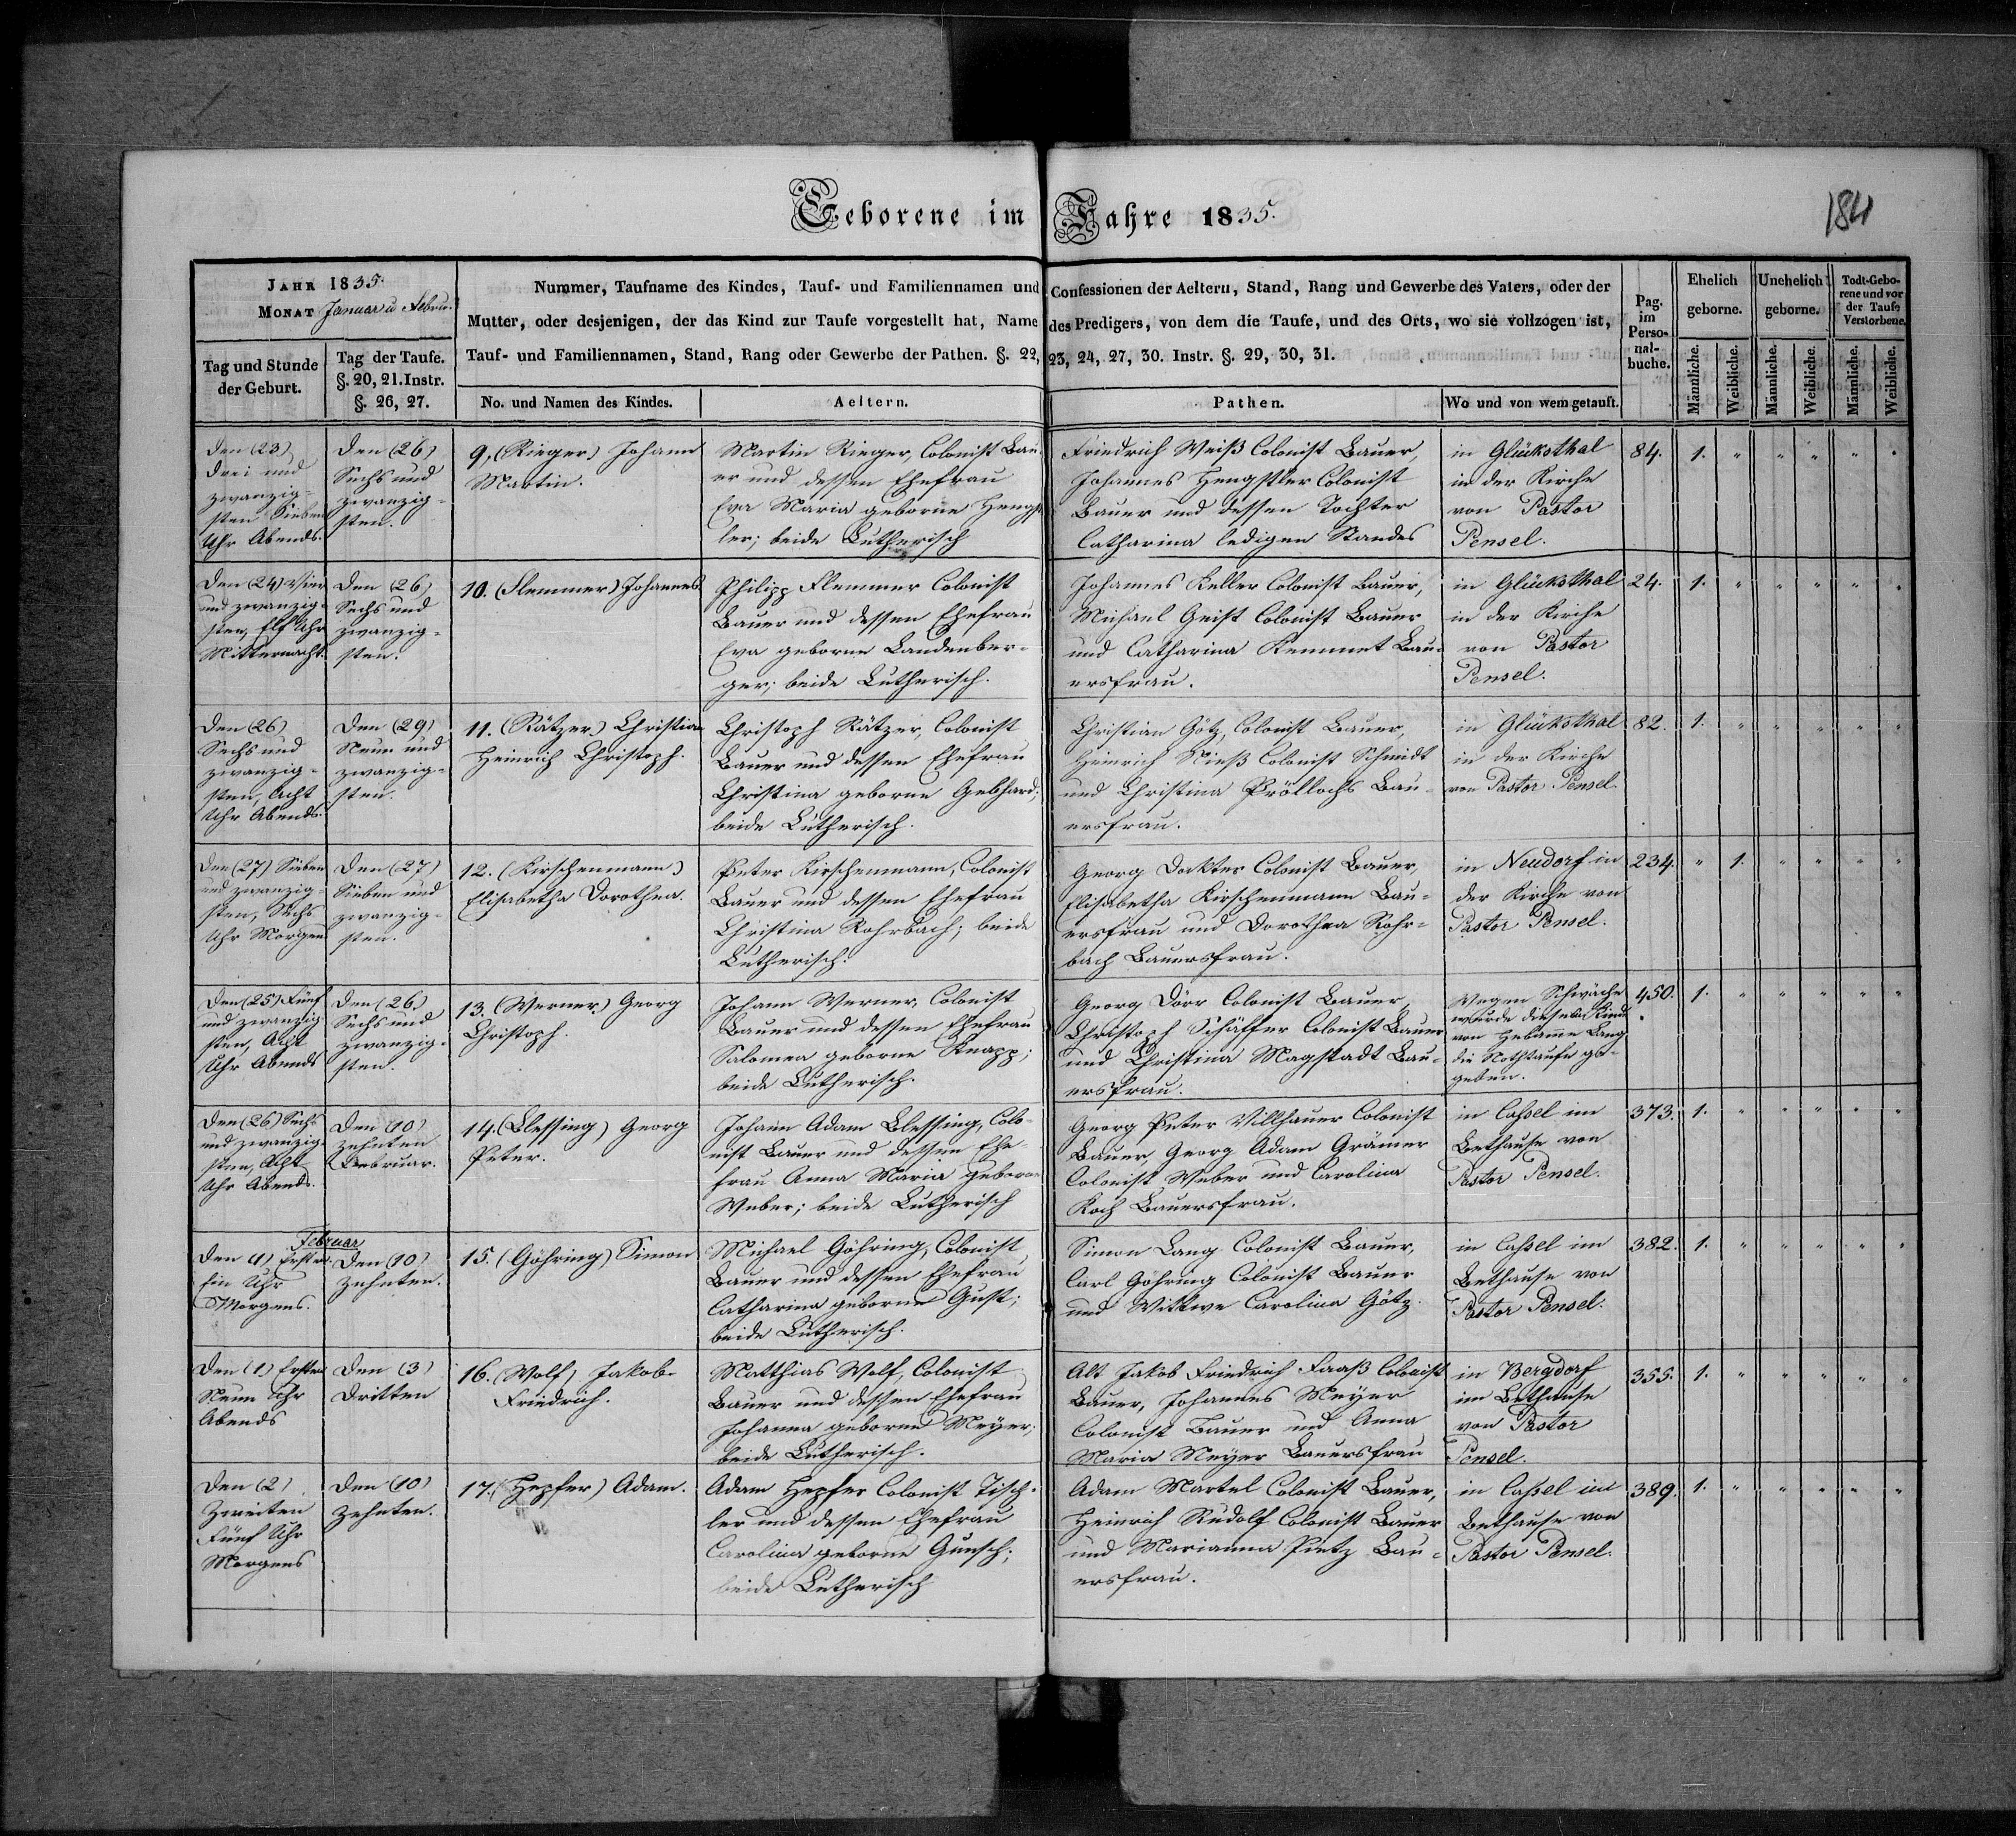 Geborene im Jahre 1835.
184
JAHR 1835.
MONAT Januar u Februa.
Nummer, Taufname des Kindes, Tauf- und Familiennamen und Confessionen der Aeltern, Stand, Rang und Gewerbe des Vaters, oder der
Mutter, oder desjenigen, der das Kind zur Taufe vorgestellt hat, Name des Predigers, von dem die Taufe, und des Orts, wo sie vollzogen ist,
Tauf- und Familiennamen, Stand, Rang oder Gewerbe der Pathen. §. 22, 23, 24, 27, 30. Instr. §. 29, 30, 31.
Tag und Stunde
der Geburt.
Tag der Taufe.
§. 20, 21. Instr.
§. 26, 27.
No. und Namen des Kindes.
Aeltern.
Pathen.
Wo und von wem getauft.
Pag.
im
Perso-
nal-
buche.
Ehelich
geborne.
Unehelich
geborne.
Todt-Gebo-
rene und vor
der Taufe
Verstorbene.
Männliche.
Weibliche.
Männliche.
Weibliche.
Männliche.
Weibliche.
Den (23)
drei und
zwanzig-
sten Sieben
Uhr Abends.
Den (26)
Sechs und
zwanzig-
sten.
9, (Rieger) Johann
Martin.
Martin Rieger, Colonist Bau-
er und dessen Ehefrau
Eva Maria geborne Hengst
ler; beide Lutherisch
Friedrich Weiß Colonist Bauer,
Johannes Hengstler Colonist
Bauer und dessen Tochter
Catharina ledigen Standes
in Glücksthal
in der Kirche
von Pastor
Pensel.
84. 1. " " " " "
Den (24) Vier
und zwanzig-
sten, Elf Uhr
Mitternacht.
Den (26)
Sechs und
zwanzig-
sten.
10. (Flemmer) Johannes
Philipp Flemmer Colonist
Bauer und dessen Ehefrau
Eva geborne Landenber-
ger; beide Lutherisch.
Johannes Keller Colonist Bauer,
Michael Geist Colonist Bauer
und Catharina Kemmet Bau-
ersfrau.
in Glücksthal
in der Kirche
von Pastor
Pensel.
24. 1. " " " " "
Den (26)
Sechs und
zwanzig-
sten, Acht
Uhr Abends.
Den (29)
Neun und
zwanzig-
sten.
11. (Rätzer) Christian
Heinrich Christoph.
Christoph Rätzer, Colonist
Bauer und dessen Ehefrau
Christina geborne Gebhard;
beide Lutherisch.
Christian Götz, Colonist Bauer,
Heinrich Nieß Colonist Schmidt
und Christina Pröllochs Bau-
ersfrau.
in Glücksthal
in der Kirche
von Pastor Pensel.
82. 1. " " " " "
Den (27) Sieben
und zwanzig-
sten, Sechs
Uhr Morgen
Den (27)
Sieben und
zwanzig-
sten.
12. (Kirschenmann)
Elisabetha Dorothea.
Peter Kirschenmann, Colonist
Bauer und dessen Ehefrau
Christina Rohrbach; beide
Lutherisch.
Georg Dockter Colonist Bauer,
Elisabetha Kirschenmann Bau-
ersfrau und Dorothea Rohr-
bach Bauersfrau.
in Neudorf in
der Kirche von
Pastor Pensel.
234. " 1. " " " "
Den (25) Fünf
und zwanzig-
sten, Acht
Uhr Abends
Den (26)
Sechs und
zwanzig-
sten.
13. (Werner) Georg
Christoph.
Johann Werner, Colonist
Bauer und dessen Ehefrau
Salomea geborne Knapp;
beide Lutherisch.
Georg Dörr Colonist Bauer,
Christoph Schäffer Colonist Bauer
und Christina Magstadt Bau-
ersfrau.
Wegen Schwäche
wurde diesem Kind
von Hebamme Lang
die Nothtaufe ge-
geben.
450. 1. " " " " "
Den (26) Sechs
und zwanzig-
sten, Acht
Uhr Abends.
Den (10)
zehnten
Februar.
14. (Blessing) Georg
Peter.
Johann Adam Blessing, Colo-
nist Bauer und dessen Ehe-
frau Anna Maria geborne
Weber; beide Lutherisch
Georg Peter Villhauer Colonist
Bauer, Georg Adam Grämer
Colonist Weber und Carolina
Koch Bauersfrau.
in Cassel im
Bethause von
Pastor Pensel.
373. 1. " " " " "
Februar
Den (1) Ersten.
Ein Uhr
Morgens.
Den (10)
zehnten.
15. (Göhring) Simon
Michael Göhring, Colonist
Bauer und dessen Ehefrau
Catharina geborne Gust;
beide Lutherisch.
Simon Lang Colonist Bauer,
Carl Göhring Colonist Bauer
und Wittwe Carolina Götz.
in Cassel im
Bethause von
Pastor Pensel.
382. 1. " " " " "
Den (1) Ersten
Neun Uhr
Abends
Den (3)
Dritten
16. (Wolf) Jakob
Friedrich.
Matthias Wolf, Colonist
Bauer und dessen Ehefrau
Johanna geborne Meyer;
beide Lutherisch.
Alt Jakob Friedrich Faaß Colonist
Bauer, Johannes Meyer
Colonist Bauer und Anna
Maria Meyer Bauersfrau
in Bergdorf
im Bethause
von Pastor
Pensel.
355. 1. " " " " "
Den (2)
Zweiten
Fünf Uhr
Morgens
Den (10)
Zehnten.
17. (Hepfer) Adam.
Adam Hepfer Colonist Tisch-
ler und dessen Ehefrau
Carolina geborne Guusch;
beide Lutherisch
Adam Martel Colonist Bauer,
Heinrich Rudolf Colonist Bauer
und Marianna Pietz Bau-
ersfrau.
in Cassel im
Bethause von
Pastor Pensel.
389. 1. " " " " "